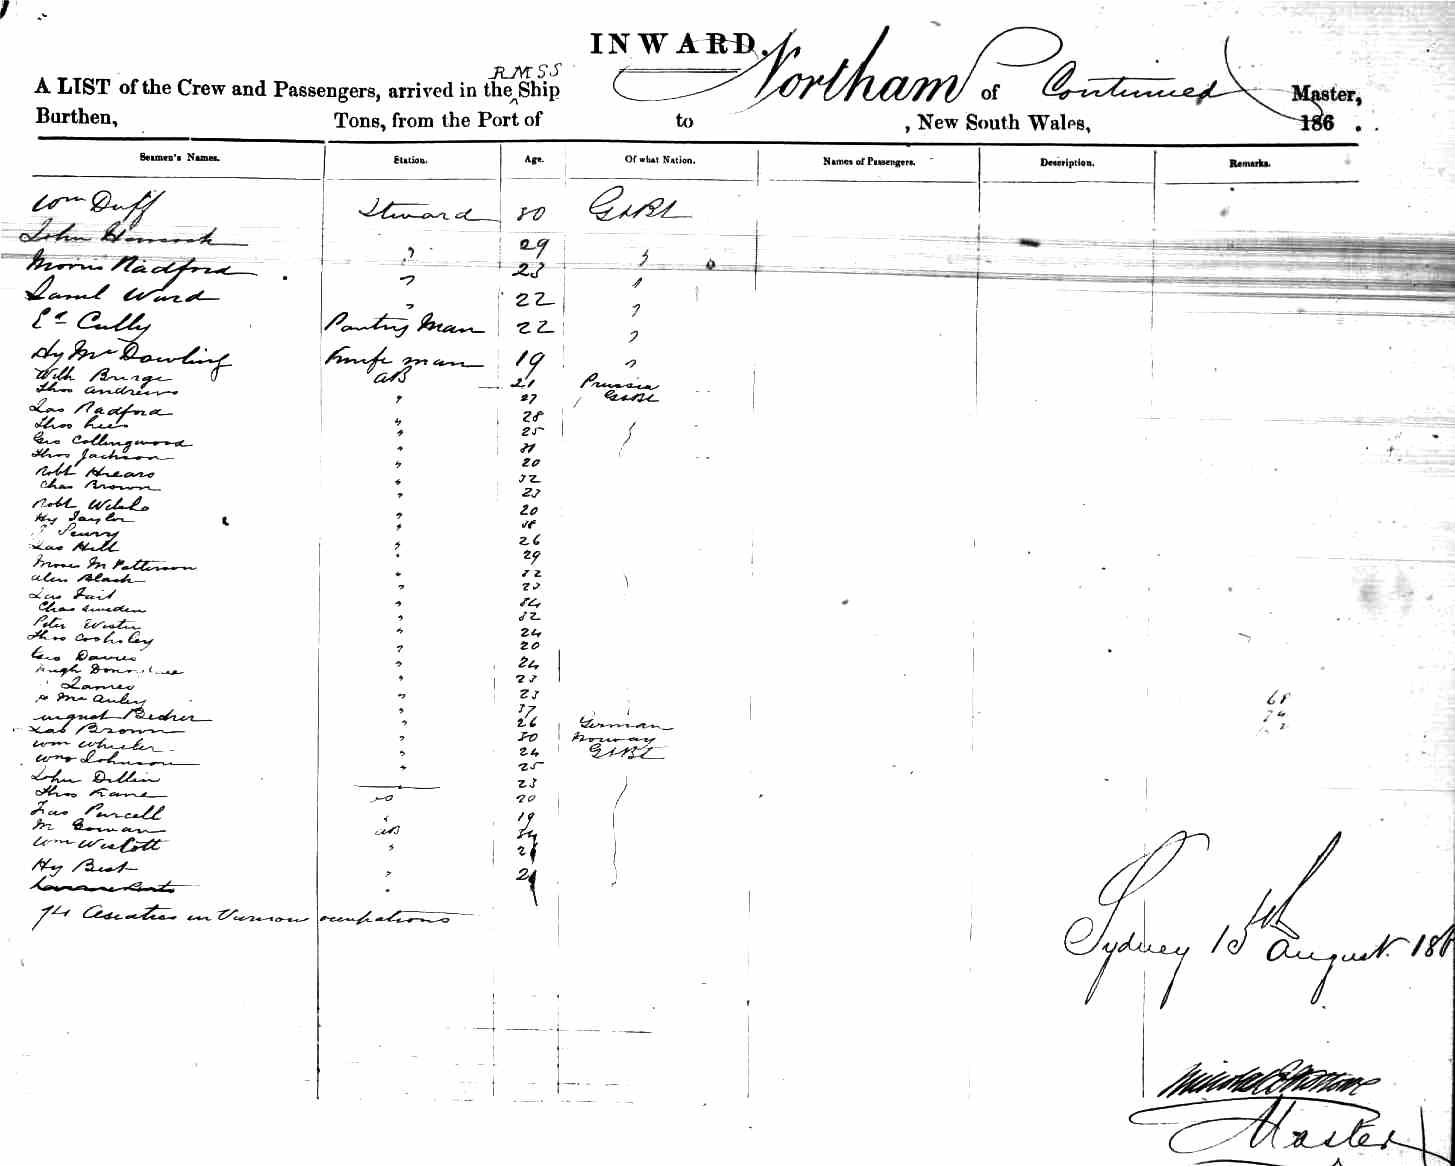 INWARD.
RMSS
A LIST of the Crew and Passengers, arrived in the Ship Northam of Continued Master,
Burthen, Tons, from the Port of to , New South Wales, 186 .
Seamen's Names. Station. Age. Of what Nation. Names of Passengers. Description. Remarks.
Wm Duff Steward 30 Gt Bt
John Hancock " 29 "
Morris Radford " 23 "
Saml Ward " 22 "
Ed Cully Pantry Man 22 "
Hy McDowling Knife man 19 "
Wilh Burge AB 21 Prussia
Thos Andrews " 27 Gt Bt
Jas Radford " 28
Thos Lees " 25
Geo Collingwood "
Thos Jackson " 20
Robt Hears " 32
Chas Brown " 23
Robt Welsh " 20
Hy Taylor " 38
Scurry " 26
Jas Hill " 29
Moses McPatterson " 32
Alex Black " 23
Jas Tait " 34
Chas Sweden " 32
Peter " 24
Thos " 20
Geo Davies " 24
Hugh " 23
James " 23
McAuley " 37
August Becher " 26 German
Jas Brown " 30 Norway
Wm Wheeler " 24 Gt Bt
Wm Johnson " 25
John Dillin 23
Thos Kane do 20
Jas Purcell " 19
M Gowan AB 34
Wm Westcott " 21
Hy Best " 21
74 Asiatics in Various occupations
Sydney 15th August 186
Master